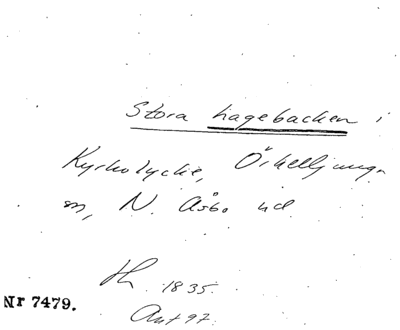 Stora hagebacken i
Kyrkolycke, Örkelljunga
sn, N. Åsbo hd
1835.
Ant 97.
Nr 7479.